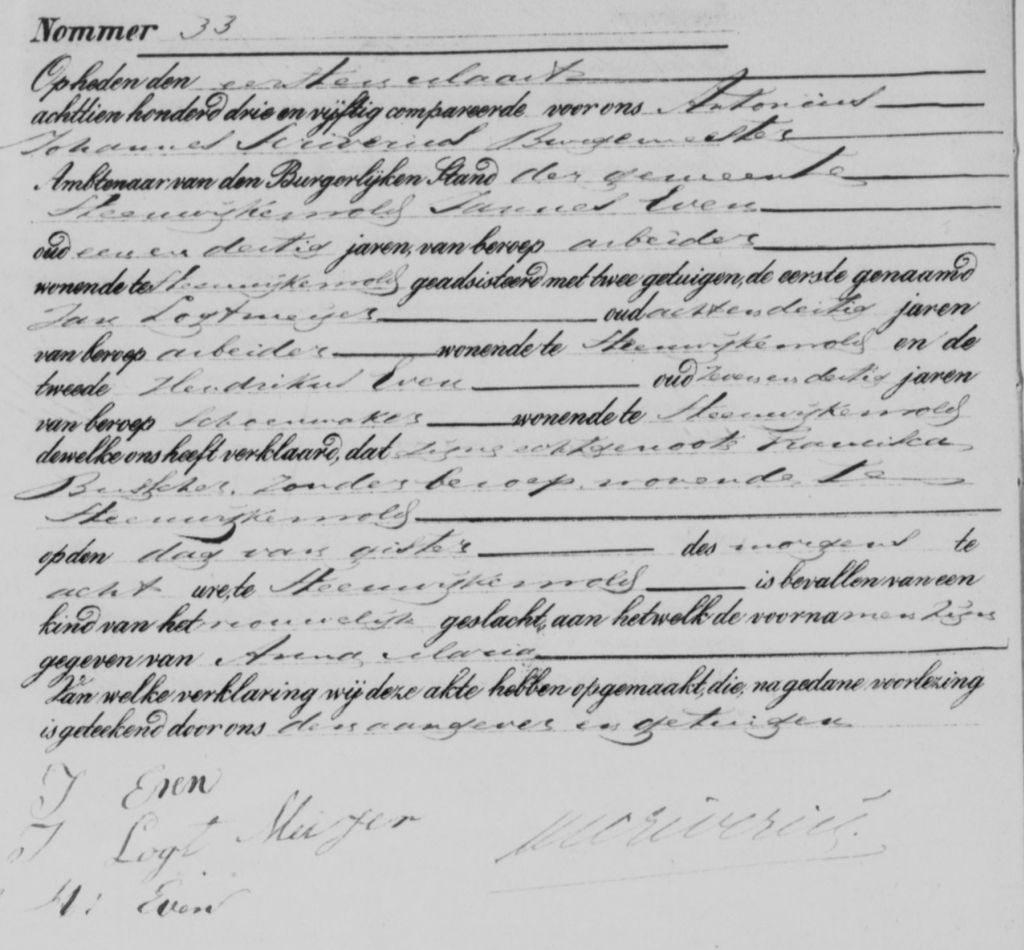 Nommer 33
Op heden den eersten Maart
achttien honderd drie en vijftig compareerde voor ons Antonius
Johannes Scriverius Burgemeester
Ambtenaar van den Burgerlijken Stand der gemeente
Steenwijkerwold Jannes Even
oud een en dertig jaren, van beroep arbeider
wonende te Steenwijkerwold geadsisteerd met twee getuigen, de eerste genaamd
Jan Logtmeijer oud acht en dertig jaren
van beroep arbeider wonende te Steenwijkerwold en de
tweede Hendrikus Even oud zeven en dertig jaren
van beroep Schoenmaker wonende te Steenwijkerwold
dewelke ons heeft verklaard, dat zijne echtgenoote Francika
Busscher, zonder beroep, wonende te
Steenwijkerwold
op den dag van gister des morgens te
acht ure, te Steenwijkerwold is bevallen van een
kind van het vrouwelijk geslacht, aan hetwelk de voornamen zijn
gegeven van Anna Maria
Van welke verklaring wij deze akte hebben opgemaakt, die, na gedane voorlezing
is geteekend door ons den aangever en getuigen
J Even
J Logt Meijer
H: Even